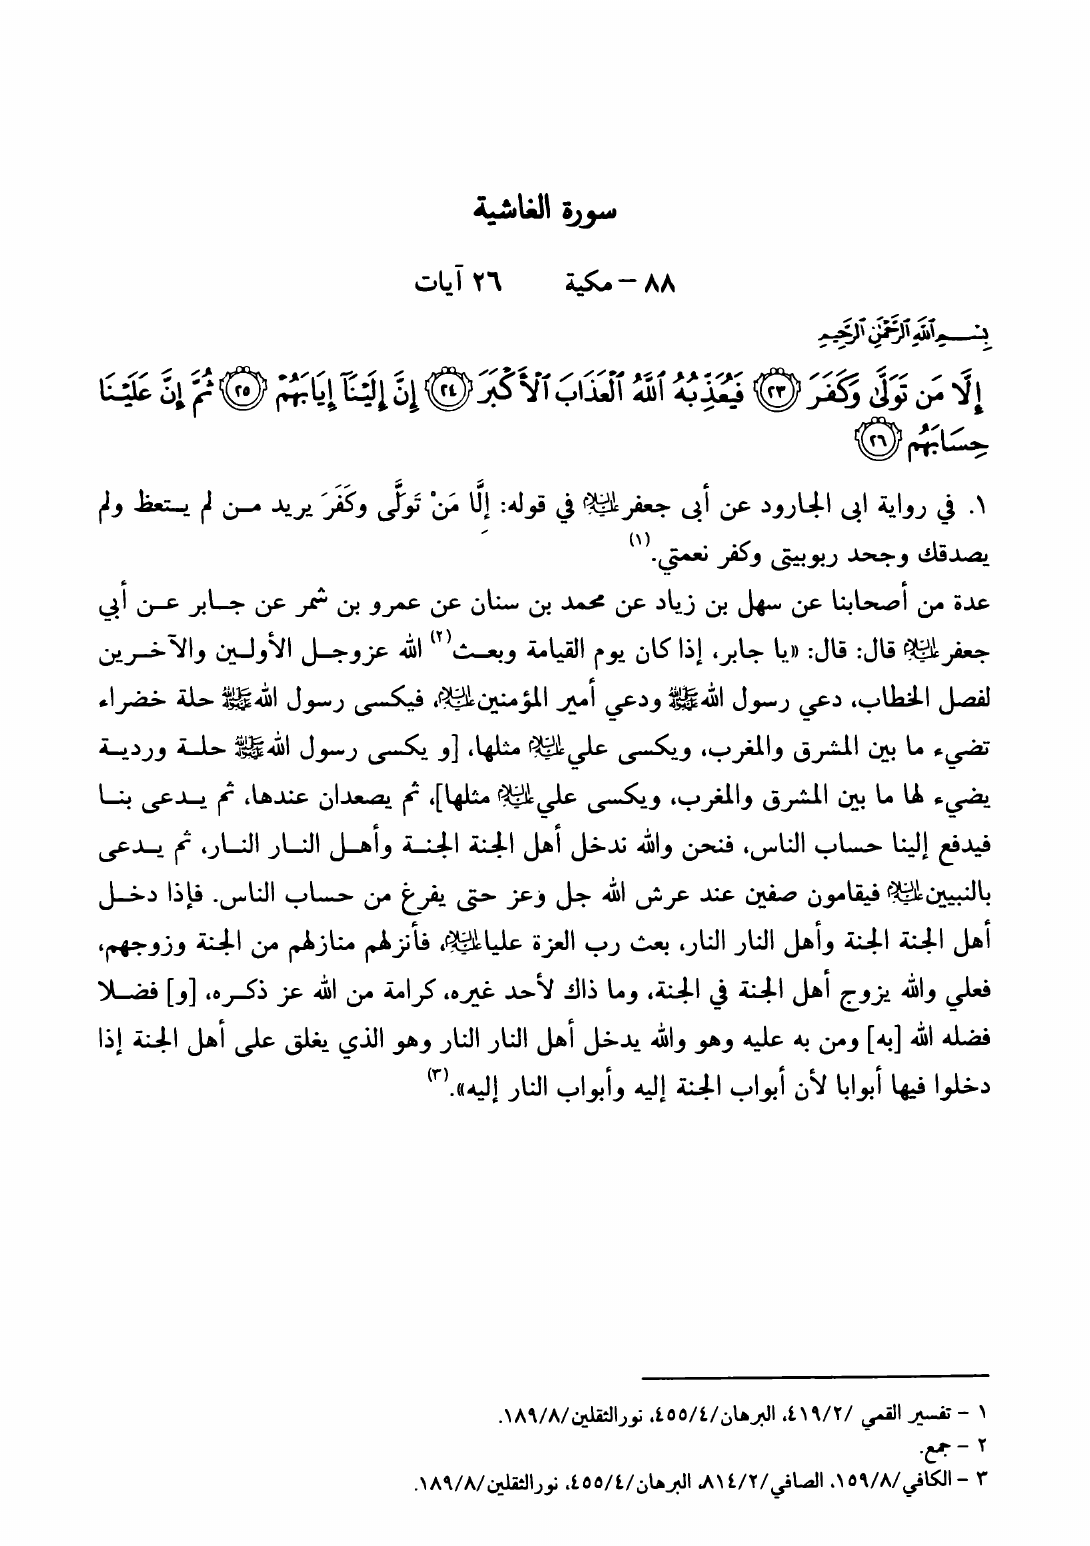 سورة الغاشية
٨٨ – مكية ٢٦ آيات
بِسْمِ ٱللَّهِ ٱلرَّحْمَٰنِ ٱلرَّحِيمِ
إِلَّا مَن تَوَلَّىٰ وَكَفَرَ ﴿٢٣﴾ فَيُعَذِّبُهُ ٱللَّهُ ٱلْعَذَابَ ٱلْأَكْبَرَ ﴿٢٤﴾ إِنَّ إِلَيْنَآ إِيَابَهُمْ ﴿٢٥﴾ ثُمَّ إِنَّ عَلَيْنَا
حِسَابَهُم ﴿٢٦﴾
١. في رواية ابى الجارود عن أبى جعفر عليه السلام في قوله: إِلَّا مَنْ تَوَلَّى وكَفَرَ يريد مــن لم يــتعظ ولم
يصدقك وجحد ربوبيتى وكفر نعمتي.(١)
عدة من أصحابنا عن سهل بن زياد عن محمد بن سنان عن عمرو بن شمر عن جــابر عــن أبي
جعفر عليه السلام قال: قال: «يا جابر، إذا كان يوم القيامة وبعــث(٢) الله عزوجــل الأولــين والآخــرين
لفصل الخطاب، دعي رسول الله ﷺ ودعي أمير المؤمنين عليه السلام، فيكسى رسول الله ﷺ حلة خضراء
تضيء ما بين المشرق والمغرب، ويكسى علي عليه السلام مثلها، [و يكسى رسول الله ﷺ حلــة ورديــة
يضيء لها ما بين المشرق والمغرب، ويكسى علي عليه السلام مثلها]، ثم يصعدان عندها، ثم يــدعى بنــا
فيدفع إلينا حساب الناس، فنحن والله ندخل أهل الجنة الجنــة وأهــل النــار النــار، ثم يــدعى
بالنبيين عليه السلام فيقامون صفين عند عرش الله جل وعز حتى يفرغ من حساب الناس. فإذا دخــل
أهل الجنة الجنة وأهل النار النار، بعث رب العزة عليا عليه السلام، فأنزلهم منازلهم من الجنة وزوجهم،
فعلي والله يزوج أهل الجنة في الجنة، وما ذاك لأحد غيره، كرامة من الله عز ذكــره، [و] فضــلا
فضله الله [به] ومن به عليه وهو والله يدخل أهل النار النار وهو الذي يغلق على أهل الجنة إذا
دخلوا فيها أبوابا لأن أبواب الجنة إليه وأبواب النار إليه».(٣)
١ – تفسير القمي /٤١٩/٢، البرهان/٤٥٥/٤، نورالثقلين/١٨٩/٨.
٢ – جمع.
٣ – الكافي/١٥٩/٨، الصافي/٨١٤/٢، البرهان/٤٥٥/٤، نورالثقلين/١٨٩/٨.